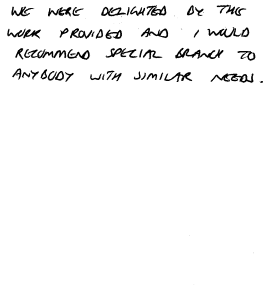 WE WERE DELIGHTED BY THE
WORK PROVIDED AND I WOULD
RECOMMEND SPECIAL BRANCH TO
ANYBODY WITH SIMILAR NEEDS.